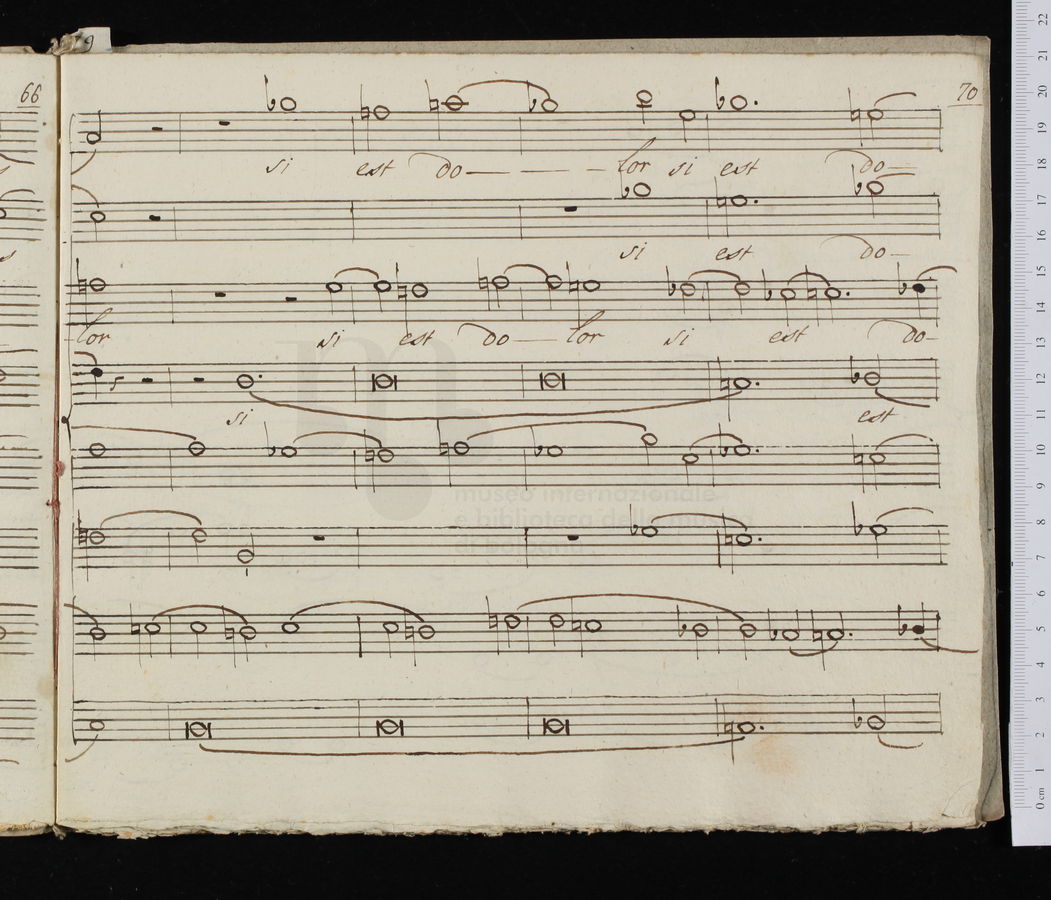 9
66
70
si est do — — — lor si est do —
si est do —
lor si est do — lor si est do-
si est
museo internazionale
e biblioteca della musica
di bologna
22
21
20
19
18
17
16
15
14
13
12
11
10
9
8
7
6
5
4
3
2
1
0 cm